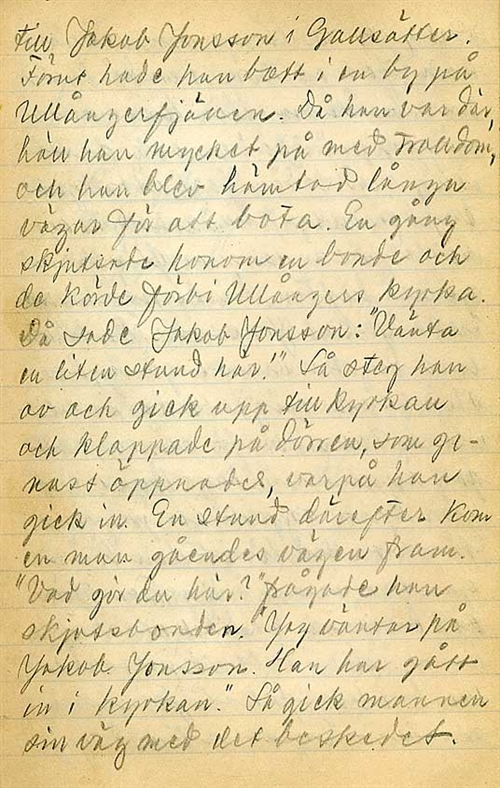 till Jakob Jonsson i Gallsätter.
Förut hade han bott i en by på
Ullångerfjärden. Då han var där,
höll han mycket på med trolldom,
och han blev hämtad långa
vägar för att bota. En gång
skjutsade honom en bonde och
de körde förbi Ullångers kyrka.
Då sade Jakob Jonsson: "Vänta
en liten stund här!" Så steg han
av och gick upp till kyrkan
och klappade på dörren, som ge-
nast öppnades, varpå han
gick in. En stund därefter kom
en man gåendes vägen fram.
"Vad gör du här?" frågade han
skjutsbonden. "Jag väntar på
Jakob Jonsson. Han har gått
in i kyrkan." Så gick mannen
sin väg med det beskedet.